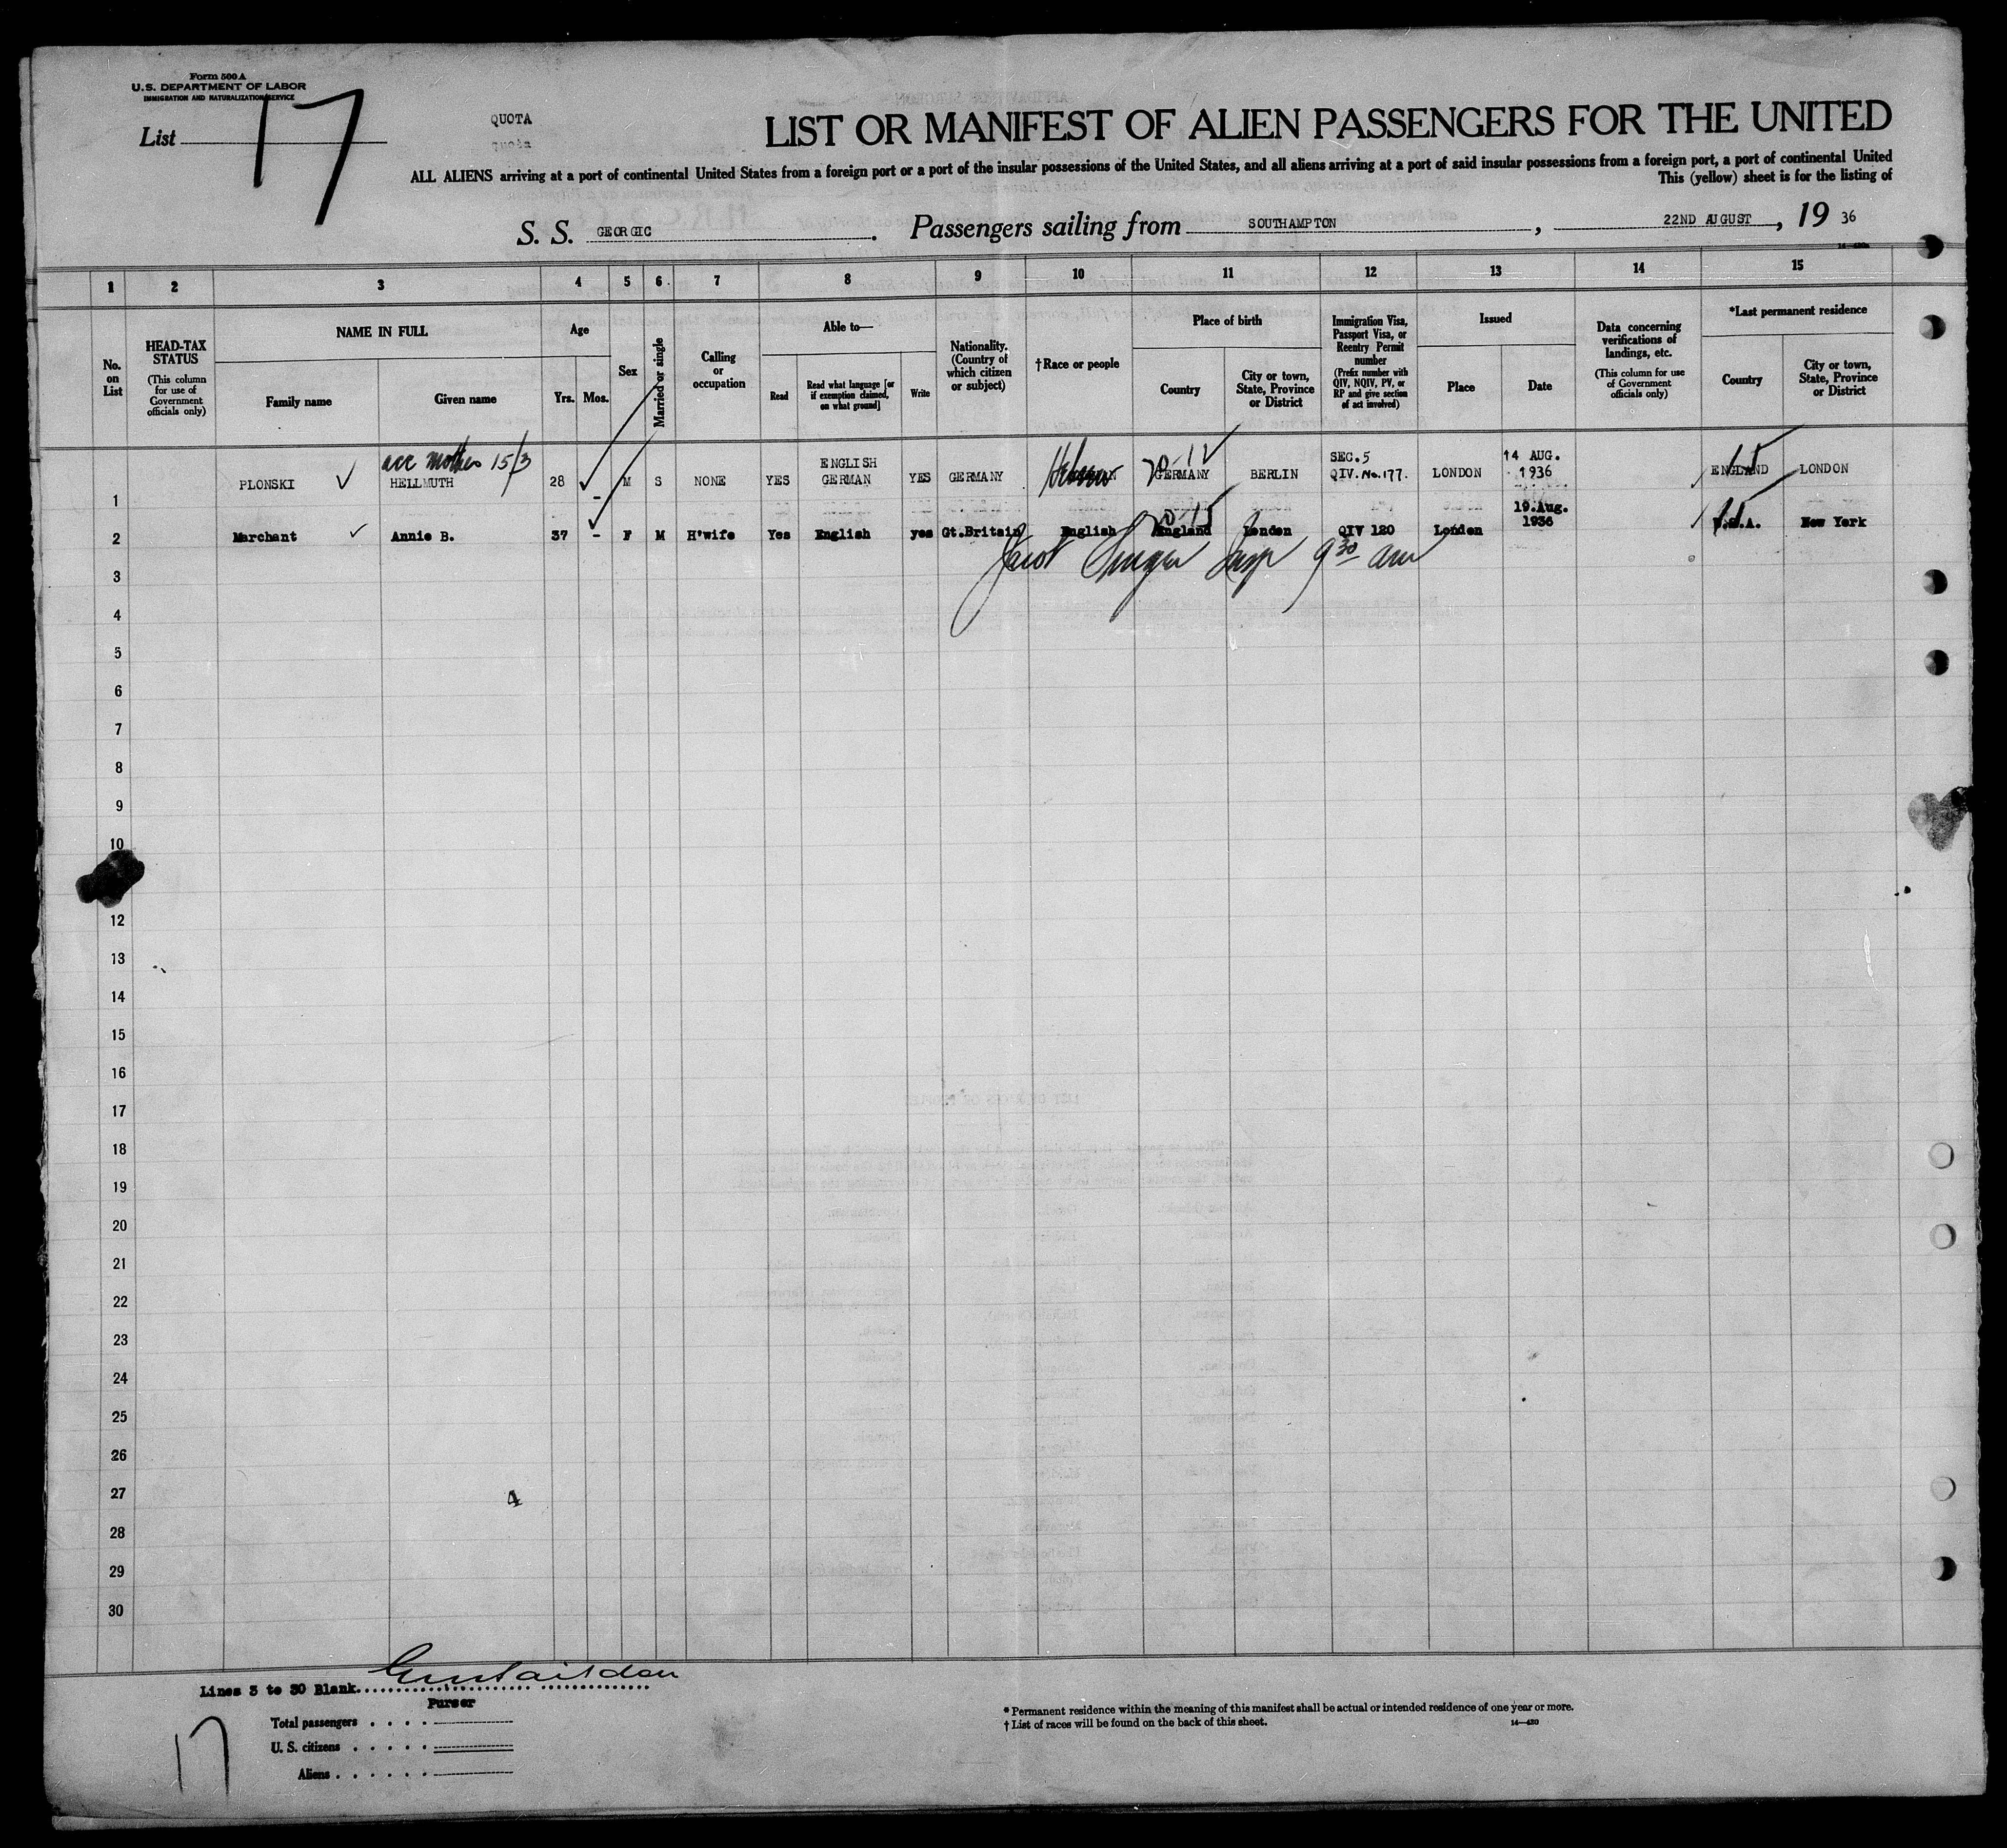 Form 500 A
U.S. DEPARTMENT OF LABOR
IMMIGRATION AND NATURALIZATION SERVICE
List 17
QUOTA
quota
LIST OR MANIFEST OF ALIEN PASSENGERS FOR THE UNITED
ALL ALIENS arriving at a port of continental United States from a foreign port or a port of the insular possessions of the United States, and all aliens arriving at a port of said insular possessions from a foreign port, a port of continental United
This (yellow) sheet is for the listing of
S. S. GEORGIC. Passengers sailing from SOUTHAMPTON, 22ND AUGUST, 19 36
1 2 3 4 5 6 7 8 9 10 11 12 13 14 15
No. on List
HEAD-TAX STATUS
(This column for use of Government officials only)
NAME IN FULL
Family name
Given name
Age
Yrs.
Mos.
Sex
Married or single
Calling or occupation
Able to—
Read
Read what language [or if exemption claimed, on what ground]
Write
Nationality. (Country of which citizen or subject)
†Race or people
Place of birth
Country
City or town, State, Province or District
Immigration Visa, Passport Visa, or Reentry Permit number
(Prefix number with QIV, NQIV, PV, or RP and give section of act involved)
Issued
Place
Date
Data concerning verifications of landings, etc.
(This column for use of Government officials only)
*Last permanent residence
Country
City or town, State, Province or District
acc mother 15/3
1 PLONSKI HELLMUTH 28 - M S NONE YES ENGLISH GERMAN YES GERMANY Hebrew GERMANY BERLIN SEC.5 QIV.No.177. LONDON 14 AUG. 1936 ENGLAND LONDON
2 Marchant Annie B. 37 - F M H'wife Yes English yes Gt.Britain English England London QIV 120 London 19.Aug. 1936 U.S.A. New York
Jacob Singer Insp 9 30 am
3
4
5
6
7
8
9
10
12
13
14
15
16
17
18
19
20
21
22
23
24
25
26
27
4
28
29
30
Lines 3 to 30 Blank
Purser
Total passengers
U. S. citizens
Aliens
17
* Permanent residence within the meaning of this manifest shall be actual or intended residence of one year or more.
† List of races will be found on the back of this sheet.
14—420